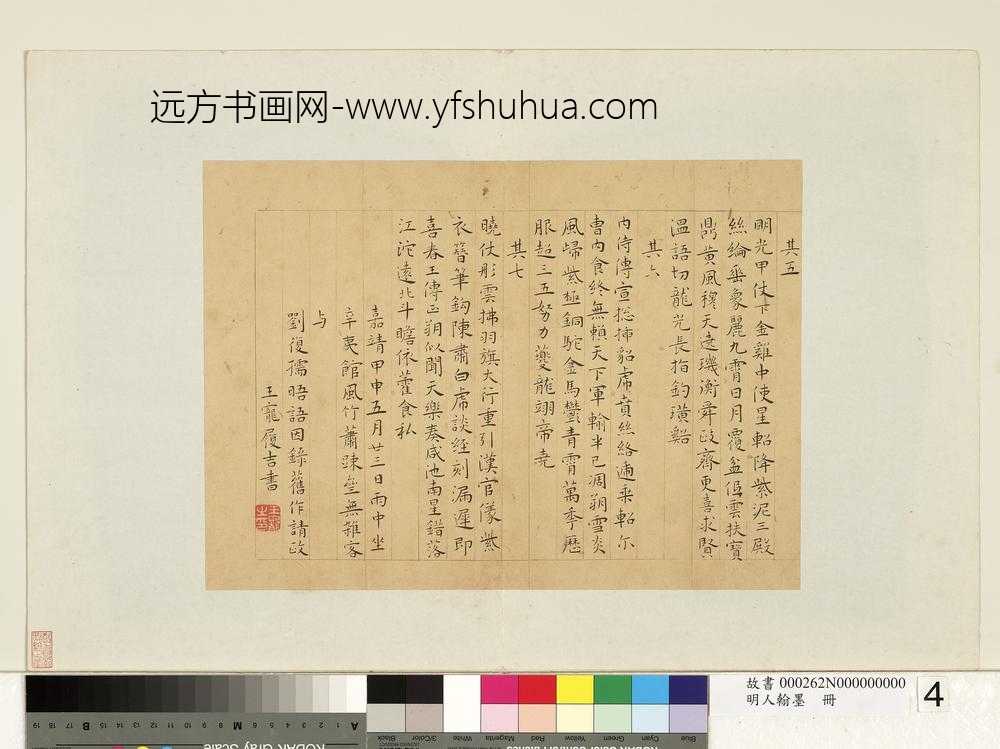 远方书画网-www.yfshuhua.com
其五
明光甲仗下金雞中使星軺降紫泥三殿
絲綸垂象麗九霄日月覆盆低雲扶寶
鼎黃風穆天遶璣衡舜政齊更喜求賢
溫語切龍光長指釣璜谿
其六
內侍傳宣捴插貂虎賁絲絡遞乘軺尔
曹內食終無賴天下軍輸半已凋朔雪炎
風歸紫極銅駝金馬鬱青霄萬季歷
服超三五努力夔龍翊帝堯
其七
曉仗彤雲拂羽旗大行重引漢官儀紫
衣簪筆鈎陳肅白虎談經刻漏遲即
喜春王傳正朔似聞天樂奏咸池南星錯落
江沱遠北斗瞻依藿食私
嘉靖甲申五月廿三日雨中坐
辛夷館風竹蕭踈坐無雜客
与
劉復孺晤語因錄舊作請政
王寵履吉書
故書 000262N000000000
明人翰墨 冊
4
19 18 17 B 16 15 14 13 12 11 10 9 8 M 7 6 5 4 3 2 1 A
KODAK Gray Scale
Blue Cyan Green Yellow Red Magenta White 3/Color Black